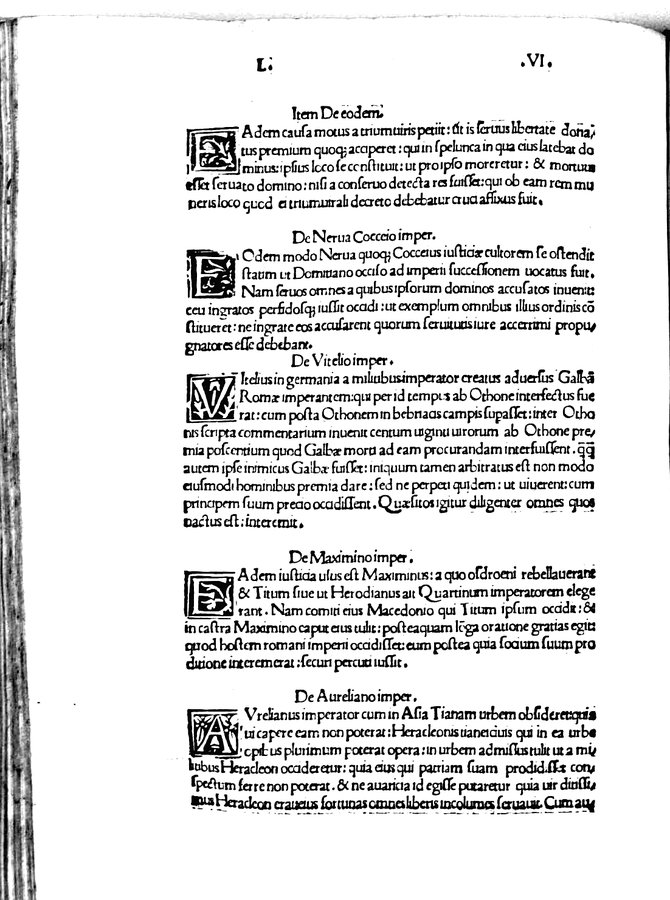 L. .VI.
Item De eodem.
EAdem causa motus a triumuiris petiit: ut is seruus libertate dona/
tus premium quoq; acciperet: qui in spelunca in qua eius latebat do
minus: ipsius loco se constituit: ut pro ipso moreretur: & mortuus
esset seruato domino: nisi a conseruo detecta res fuisset: qui ob eam rem mu
neris loco quod ei triumuirali decreto debebatur cruci affixus fuit.
De Nerua Cocceio imper.
EOdem modo Nerua quoq; Cocceius iusticiæ cultorem se ostendit
statim ut Domitiano occiso ad imperii successionem uocatus fuit.
Nam seruos omnes a quibus ipsorum dominos accusatos inuenit:
ceu ingratos perfidosq; iussit occidi: ut exemplum omnibus illius ordinis cō
stitueret: ne ingrate eos accusarent quorum seruitutis iure acerrimi propu/
gnatores esse debebant.
De Vitelio imper.
VItelius in germania a militibus imperator creatus aduersus Galbā
Romæ imperantem: qui per id tempus ab Othone interfectus fue
rat: cum posta Othonem in bebriacis campis supasset: inter Otho
nis scripta commentarium inuenit centum uiginti uirorum ab Othone pre/
mia poscentium quod Galbæ morti ad eam procurandam interfuissent. qq̄
autem ipse inimicus Galbæ fuisset: iniquum tamen arbitratus est non modo
eiusmodi hominibus premia dare: sed ne perpeti quidem: ut uiuerent: cum
principem suum precio occidissent. Quæsitos igitur diligenter omnes quos
nactus est: interemit.
De Maximino imper.
EAdem iusticia usus est Maximinus: a quo osdroeni rebellauerant
& Titum siue ut Herodianus ait Quartinum imperatorem elege
rant. Nam comiti eius Macedonio qui Titum ipsum occidit: &
in castra Maximino caput eius tulit: posteaquam lōga oratione gratias egit:
quod hostem romani imperii occidisset: eum postea quia socium suum pro
ditione interemerat: securi percuti iussit.
De Aureliano imper.
AVrelianus imperator cum in Asia Tianam urbem obsideret: quia
ui capere eam non poterat: Heracleonis tianei ciuis qui in ea urbe
opibus plurimum poterat opera: in urbem admissus tulit ut a mi
litibus Heracleon occideretur: quia eius qui patriam suam prodidisset con/
spectum ferre non poterat. & ne auaricia id egisse putaretur quia uir ditissi/
mus Heracleon erat: eius fortunas omnes liberis incolumes seruauit. Cum aut